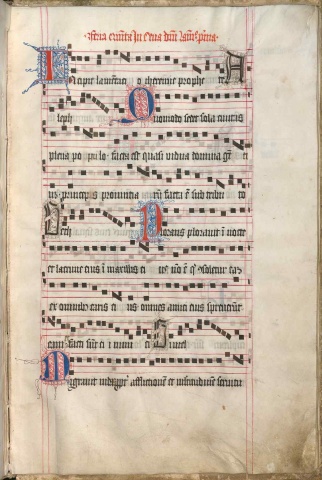 Feria quinta In Cena dni lam. prima.
Incipit lamentac o iheremie prophe te A
leph Quomodo sedet sola ciuitas
plena po pu lo facta est quasi vidua domina ge ti
us princeps prouincia rum facta e sub tribu to
Beth Plorans plorauit i nocte
et lacrime eius i maxillis ei us no e qs soletur ea
ex omnibus caris ei us omnes amici eius spreuerut
eam facti sut ei i nimi ci Gimel
Migrauit iudas afflictionem et multitudinem seruitu